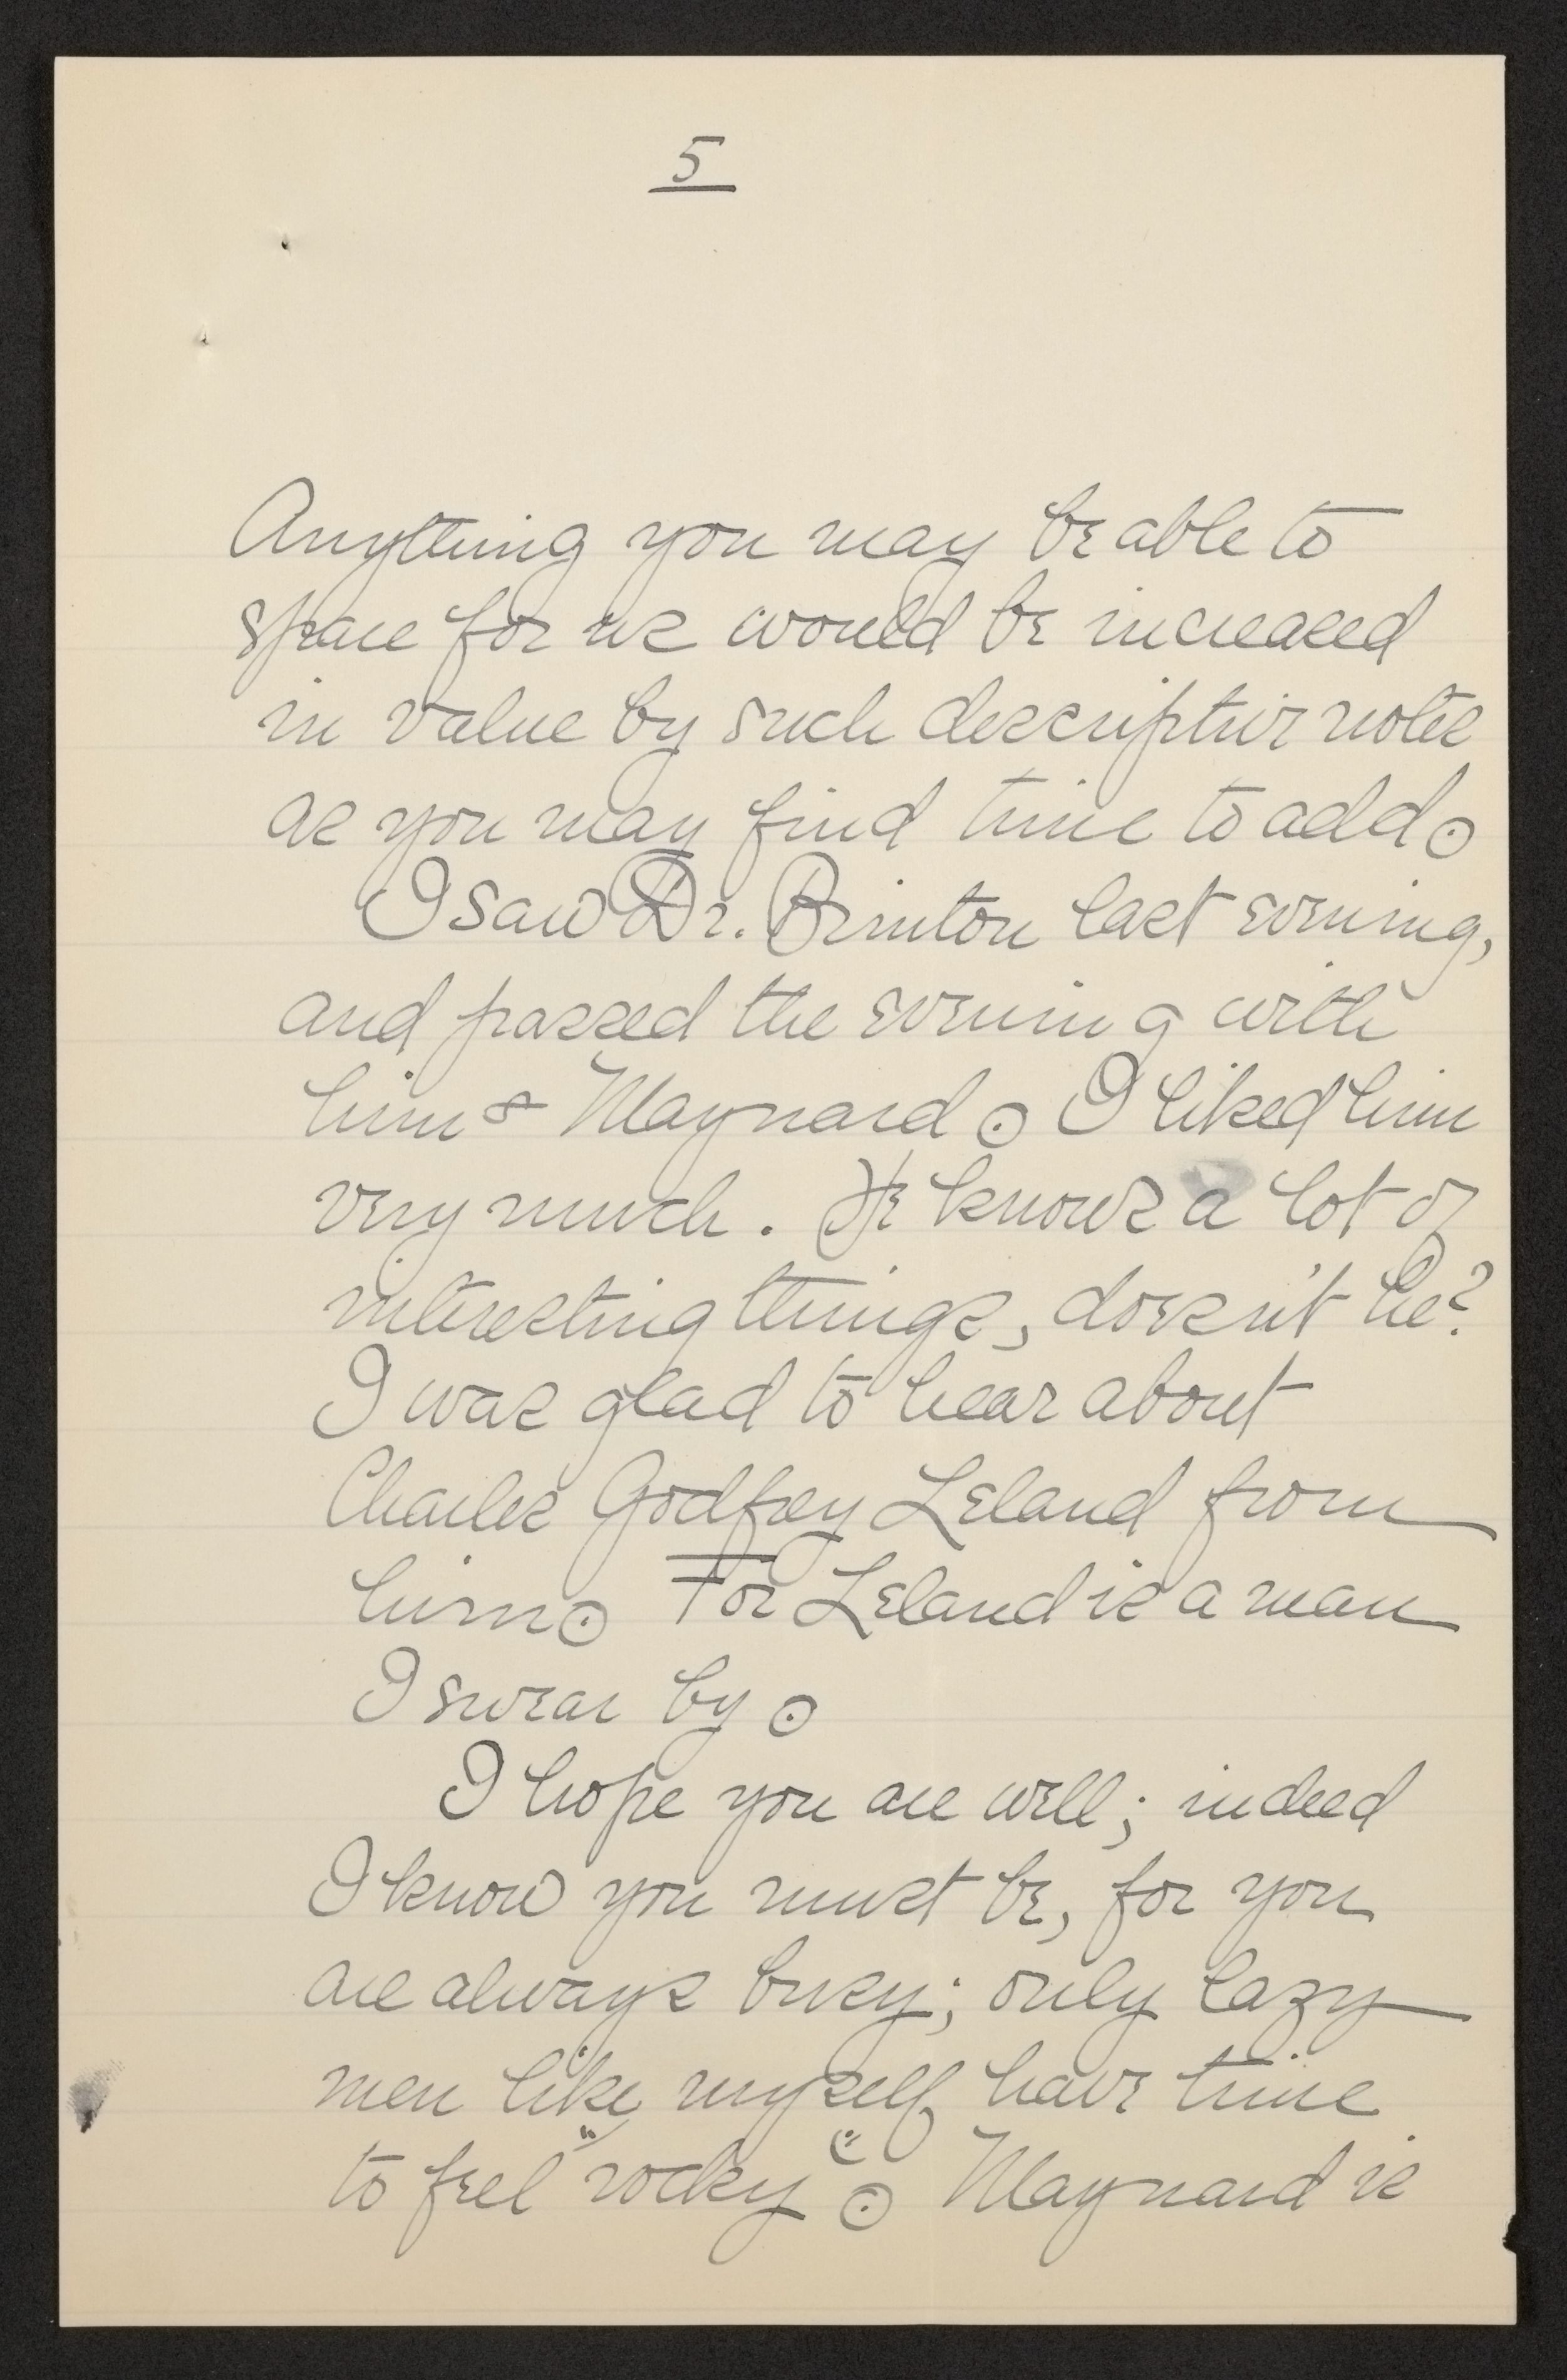 5
Anything you may be able to
spare for us would be increased
in value by such descriptive notes
as you may find time to add.
I saw Dr. Brinton last evening,
and passed the evening with
him & Maynard. I liked him
very much. He knows a lot of
interesting things, doesn't he?
I was glad to hear about
Charles Godfrey Leland from
him. For Leland is a man
I swear by.
I hope you are well; indeed
I know you must be, for you
are always busy; only lazy
men like myself have time
to feel "rocky". Maynard is